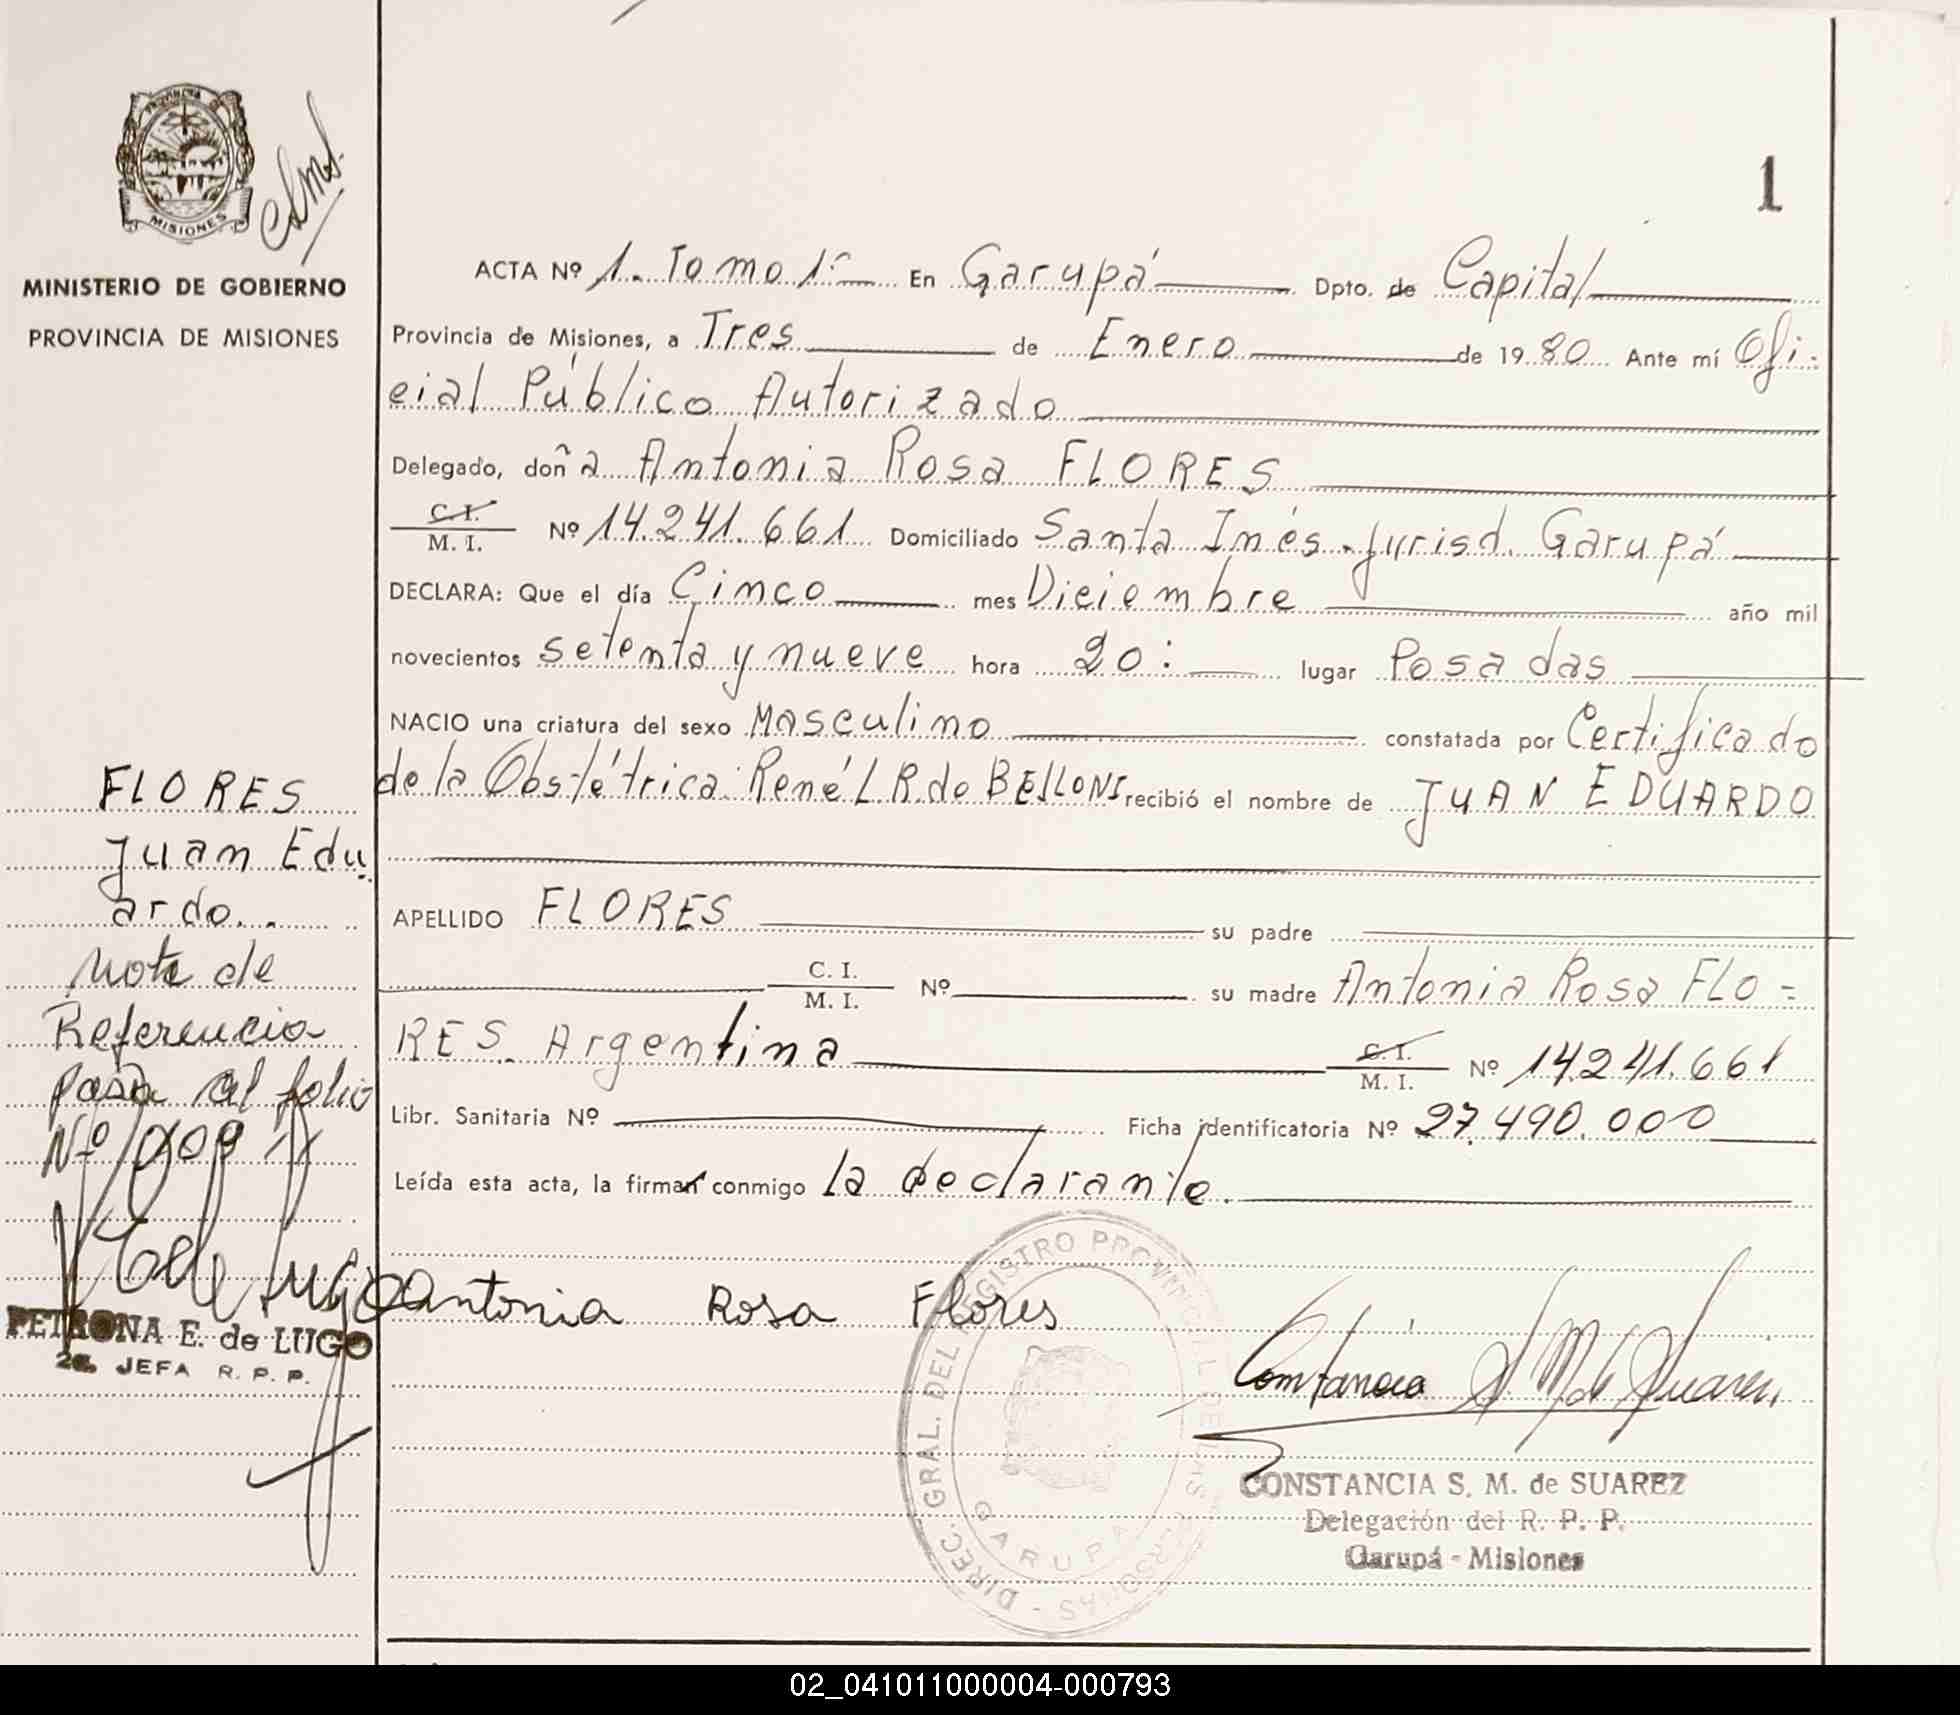 PROVINCIA
MISIONES
MINISTERIO DE GOBIERNO
PROVINCIA DE MISIONES
1
ACTA Nº 1. Tomo 1º En Garupá Dpto. de Capital
Provincia de Misiones, a Tres de Enero de 1980 Ante mí Ofi-
cial Público Autorizado
Delegado, doña Antonia Rosa FLORES
C. I.
M. I. Nº 14.241.661 Domiciliado Santa Inés - Jurisd. Garupá
DECLARA: Que el día Cinco mes Diciembre año mil
novecientos setenta y nueve hora 20: lugar Posadas
NACIO una criatura del sexo Masculino constatada por Certificado
de la Obstétrica René L. R. de BELLONI recibió el nombre de JUAN EDUARDO
APELLIDO FLORES su padre
C. I.
M. I. Nº su madre Antonia Rosa FLO-
RES. Argentina C. I.
M. I. Nº 14.241.661
Libr. Sanitaria Nº Ficha identificatoria Nº 27.490.000
Leída esta acta, la firman conmigo la declarante.
FLORES
Juan Edu-
ardo..
Nota de
Referencia
pasa al folio
Nº 009
PETRONA E. de LUGO
2a. JEFA R. P. P.
Antonia Rosa Flores
Constancia S M de Suarez
DIREC. GRAL. DEL REGISTRO PROVINCIAL DE LAS PERSONAS -
GARUPA
CONSTANCIA S. M. de SUAREZ
Delegación del R. P. P.
Garupá - Misiones
02_041011000004-000793